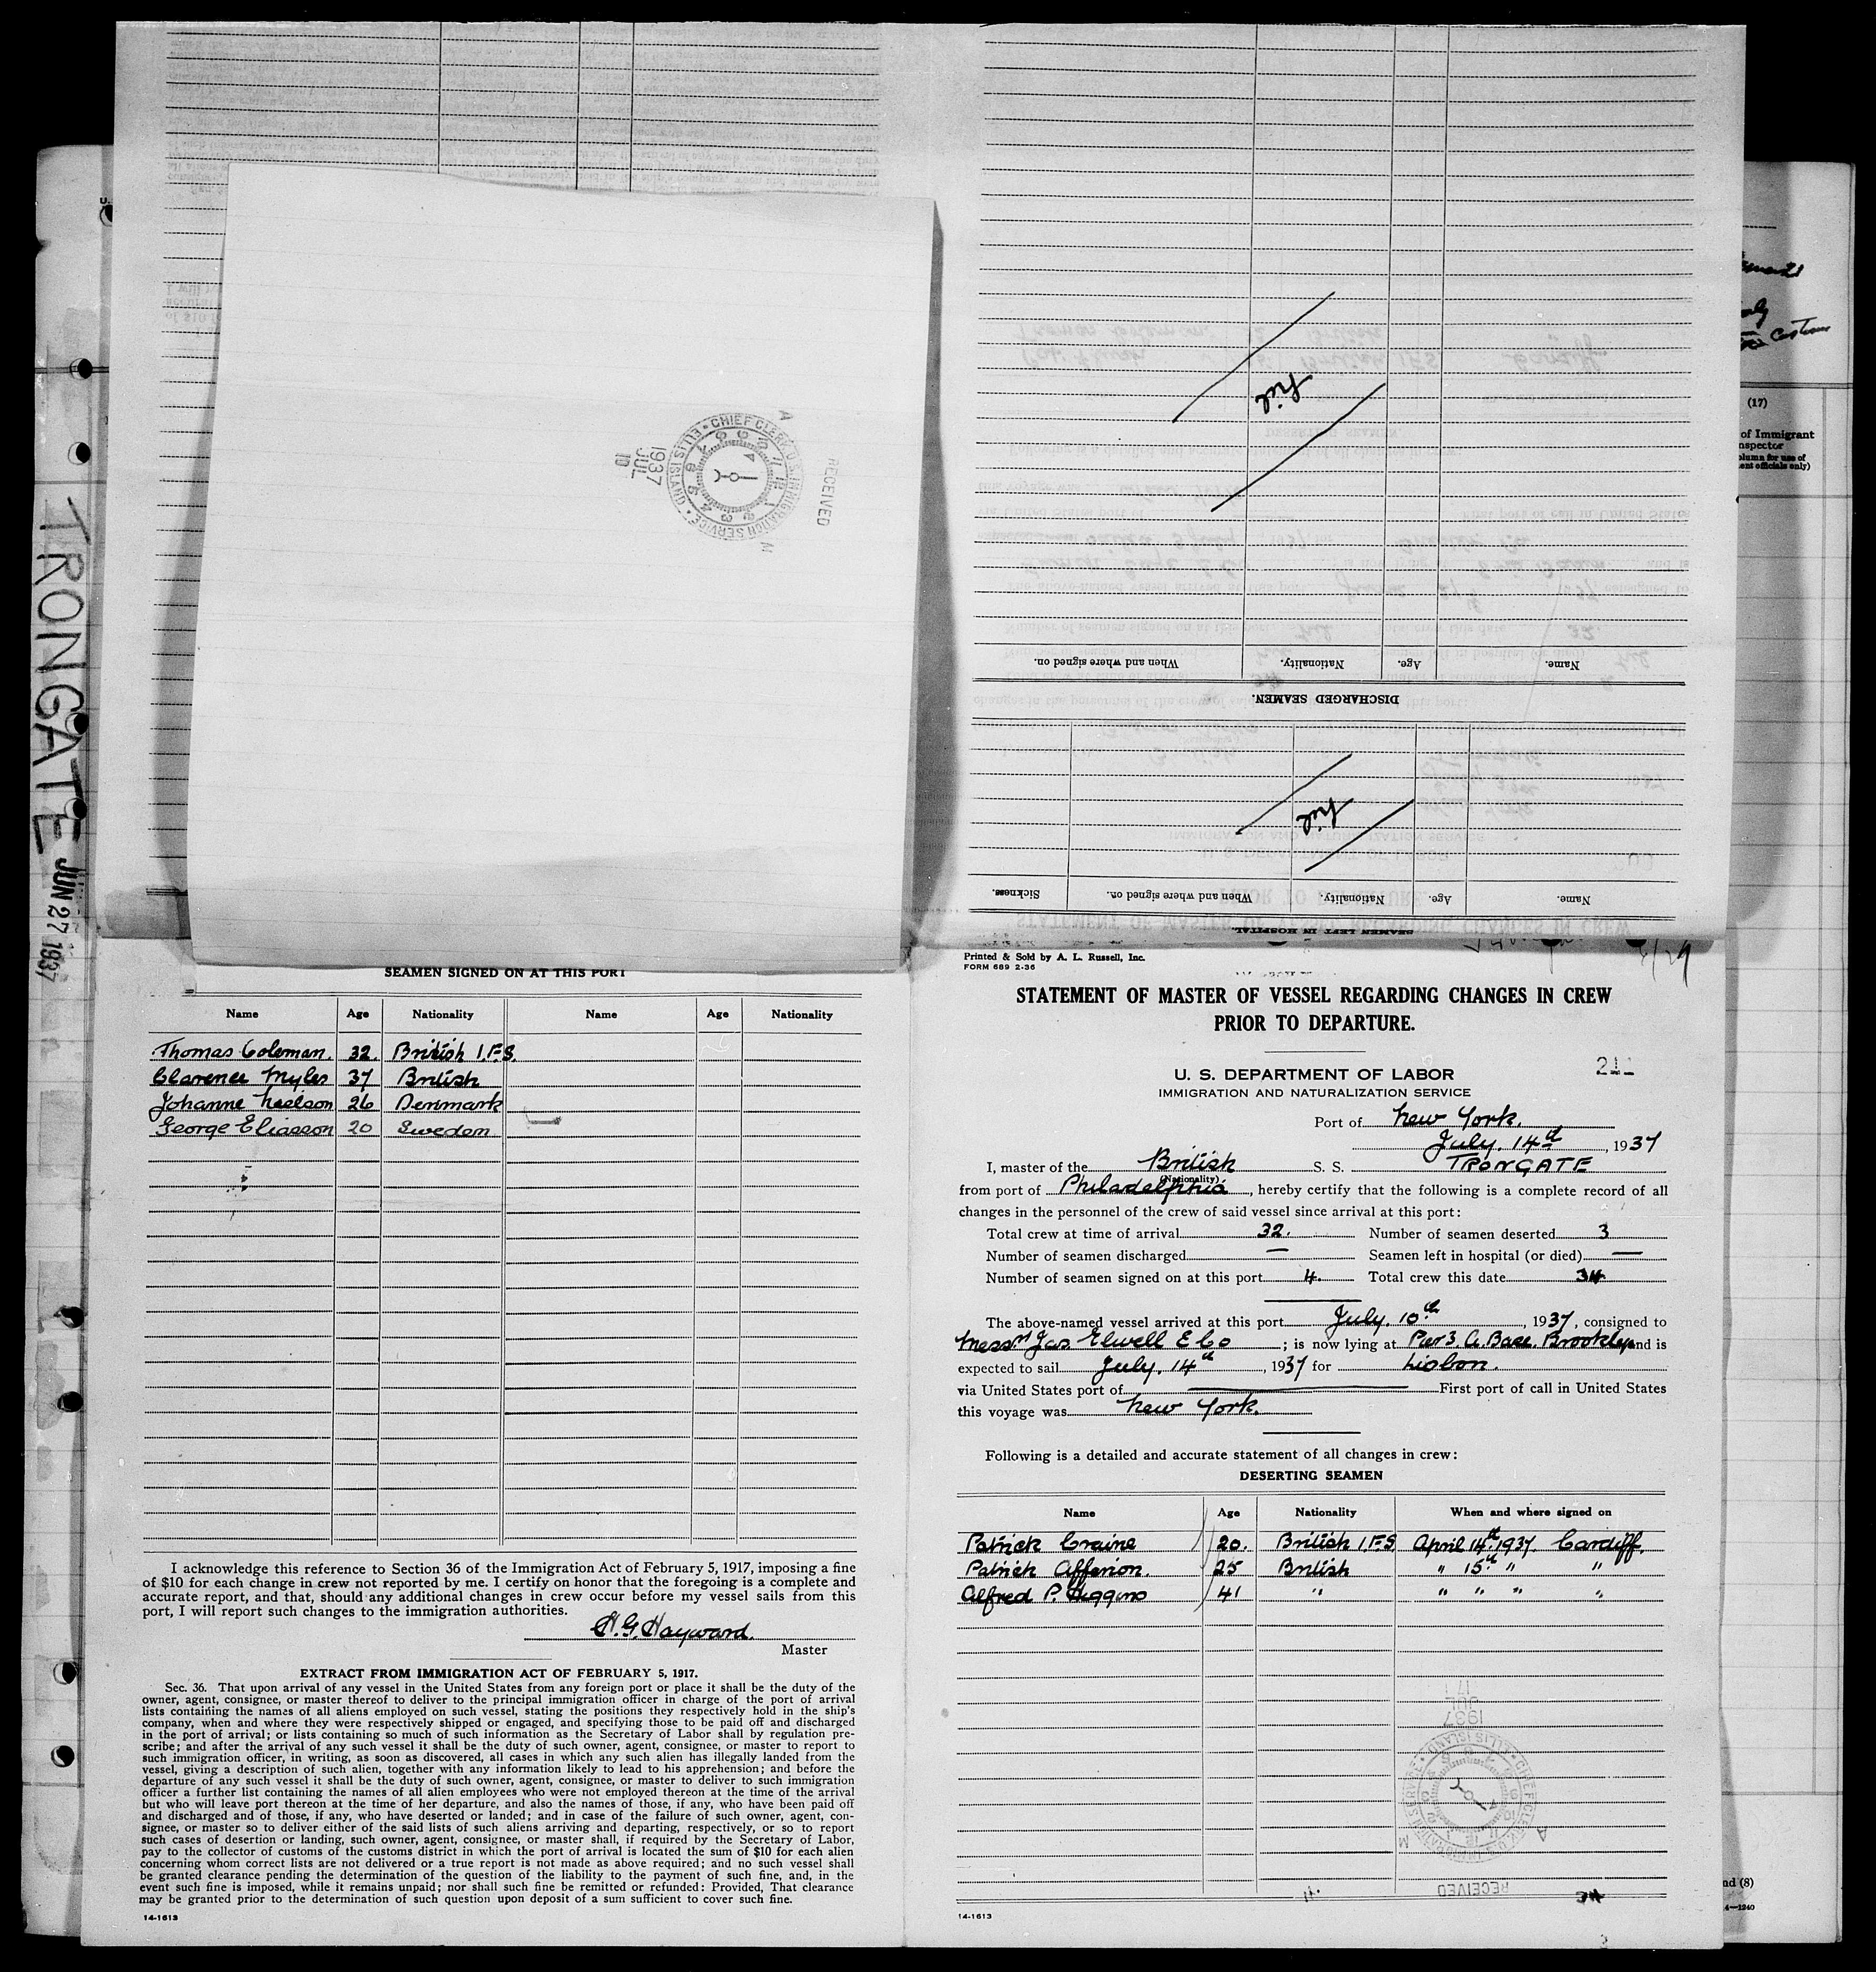 TRONGATE JUN 27 1937
RECEIVED
CHIEF CLERK U.S. IMMIGRATION SERVICE • ELLIS ISLAND •
A M
1937
JUL
10
nil
Name. Age. Nationality. When and where signed on.
DISCHARGED SEAMEN.
nil
Name. Age. Nationality. When and where signed on. Sickness.
SEAMEN LEFT IN HOSPITAL
(17)
of Immigrant
nspector
olumn for use of
ent officials only)
nd (8)
4—1240
SEAMEN SIGNED ON AT THIS PORT
Name Age Nationality Name Age Nationality
Thomas Coleman. 32. British I.F.S.
Clarence Myles 37 British
Johanne Neelson 26 Denmark
George Eliasson 20 Sweden
I acknowledge this reference to Section 36 of the Immigration Act of February 5, 1917, imposing a fine
of $10 for each change in crew not reported by me. I certify on honor that the foregoing is a complete and
accurate report, and that, should any additional changes in crew occur before my vessel sails from this
port, I will report such changes to the immigration authorities.
H. G. Hayward.
Master
EXTRACT FROM IMMIGRATION ACT OF FEBRUARY 5, 1917.
Sec. 36. That upon arrival of any vessel in the United States from any foreign port or place it shall be the duty of the
owner, agent, consignee, or master thereof to deliver to the principal immigration officer in charge of the port of arrival
lists containing the names of all aliens employed on such vessel, stating the positions they respectively hold in the ship's
company, when and where they were respectively shipped or engaged, and specifying those to be paid off and discharged
in the port of arrival; or lists containing so much of such information as the Secretary of Labor shall by regulation pre-
scribe; and after the arrival of any such vessel it shall be the duty of such owner, agent, consignee, or master to report to
such immigration officer, in writing, as soon as discovered, all cases in which any such alien has illegally landed from the
vessel, giving a description of such alien, together with any information likely to lead to his apprehension; and before the
departure of any such vessel it shall be the duty of such owner, agent, consignee, or master to deliver to such immigration
officer a further list containing the names of all alien employees who were not employed thereon at the time of the arrival
but who will leave port thereon at the time of her departure, and also the names of those, if any, who have been paid off
and discharged and of those, if any, who have deserted or landed; and in case of the failure of such owner, agent, con-
signee, or master so to deliver either of the said lists of such aliens arriving and departing, respectively, or so to report
such cases of desertion or landing, such owner, agent, consignee, or master shall, if required by the Secretary of Labor,
pay to the collector of customs of the customs district in which the port of arrival is located the sum of $10 for each alien
concerning whom correct lists are not delivered or a true report is not made as above required; and no such vessel shall
be granted clearance pending the determination of the question of the liability to the payment of such fine, and, in the
event such fine is imposed, while it remains unpaid; nor shall such fine be remitted or refunded: Provided, That clearance
may be granted prior to the determination of such question upon deposit of a sum sufficient to cover such fine.
14-1613
Printed & Sold by A. L. Russell, Inc.
FORM 689 2-36
STATEMENT OF MASTER OF VESSEL REGARDING CHANGES IN CREW
PRIOR TO DEPARTURE.
U. S. DEPARTMENT OF LABOR
IMMIGRATION AND NATURALIZATION SERVICE
Port of New York.
July. 14th, 1937
I, master of the British S. S. TRONGATE
(Nationality)
from port of Philadelphia, hereby certify that the following is a complete record of all
changes in the personnel of the crew of said vessel since arrival at this port:
Total crew at time of arrival 32. Number of seamen deserted 3
Number of seamen discharged — Seamen left in hospital (or died) —
Number of seamen signed on at this port 4. Total crew this date
The above-named vessel arrived at this port July. 10th, 1937, consigned to
Messrs Jas. Elwell & Co; is now lying at Pier 3. A. Base. Brooklyn and is
expected to sail July. 14th, 1937 for Lisbon.
via United States port of — First port of call in United States
this voyage was New York.
Following is a detailed and accurate statement of all changes in crew:
DESERTING SEAMEN
Name Age Nationality When and where signed on
Patrick Craine 20. British I.F.S April 14th 1937. Cardiff.
Patrick Afferion. 25 British " 15th " "
Alfred P. Higgins 41 " " " " "
JUL
1937
CHIEF CLERK U.S. IMMIGRATION SERVICE • ELLIS ISLAND •
A M
RECEIVED
14-1613